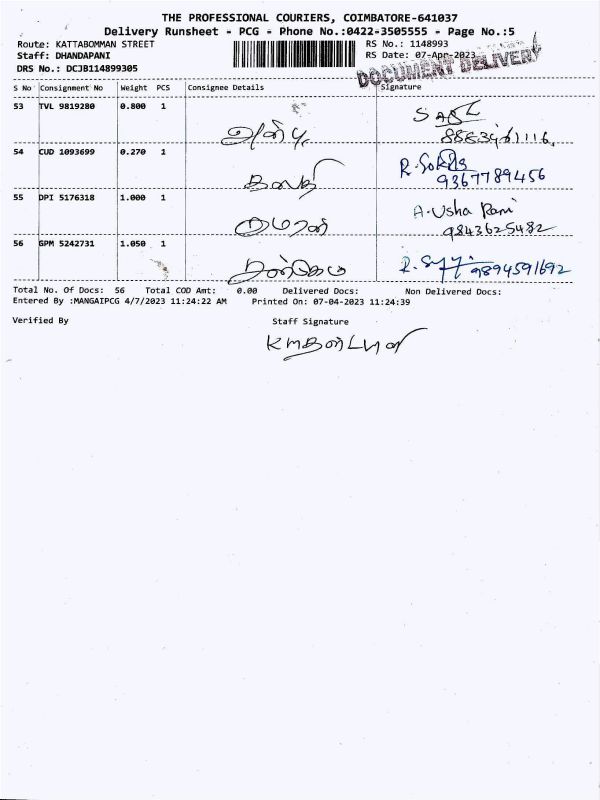 THE PROFESSIONAL COURIERS, COIMBATORE-641037
Delivery Runsheet - PCG - Phone No.:0422-3505555 - Page No.:5
Route: KATTABOMMAN STREET
RS No.: 1148993
Staff: DHANDAPANI
RS Date: 07-Apr-2023
DRS No.: DCJB114899305
DOCUMENT DELIVERY
S No Consignment No Weight PCS Consignee Details Signature
53 TVL 9819280 0.800 1
54 CUD 1093699 0.270 1
9367789456
55 DPI 5176318 1.000 1 குமரன் A. Usha Rani
9843625482
56 GPM 5242731 1.050 1 9894591692
Total No. Of Docs: 56 Total COD Amt: 0.00 Delivered Docs: Non Delivered Docs:
Entered By :MANGAIPCG 4/7/2023 11:24:22 AM Printed On: 07-04-2023 11:24:39
Verified By Staff Signature